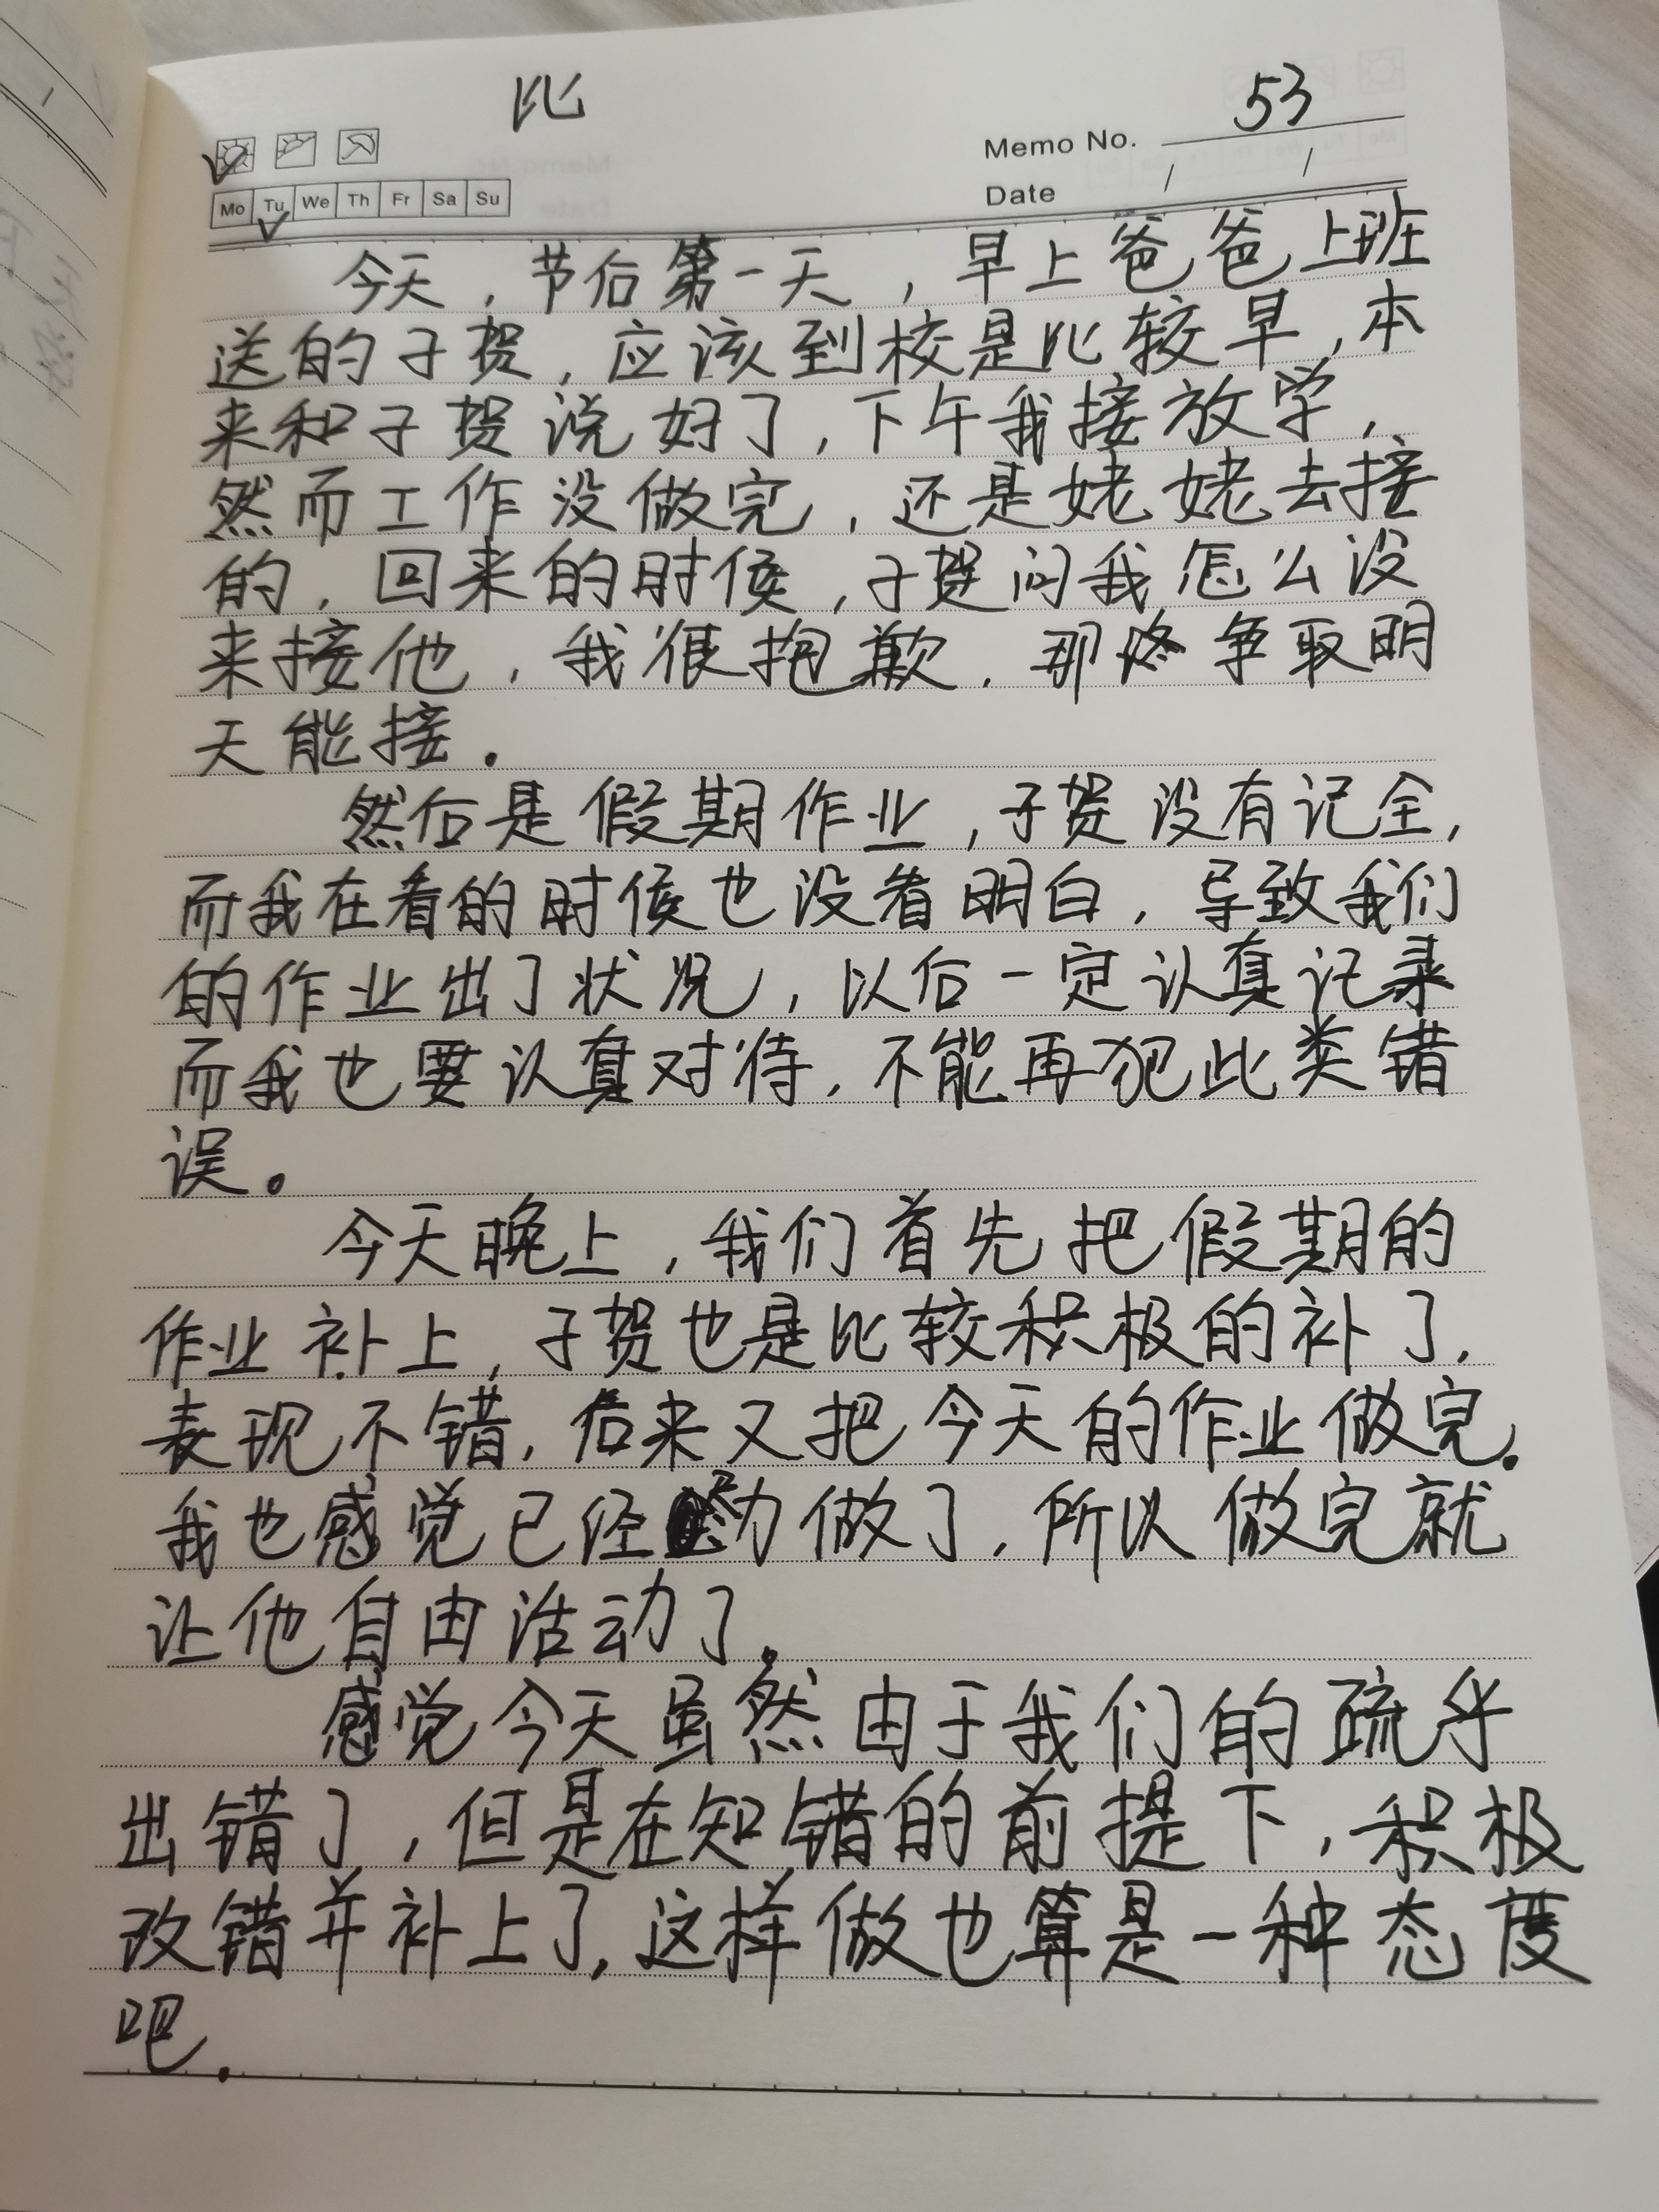 比
53
Memo No.
Mo Tu We Th Fr Sa Su
Date / /
今天,节后第一天,早上爸爸上班
送的子贺,应该到校是比较早,本
来和子贺说好了,下午我接放学,
然而工作没做完,还是姥姥去接
的,回来的时候,子贺问我怎么没
来接他,我很抱歉,那 争取明
天能接.
然后是假期作业,子贺没有记全,
而我在看的时候也没看明白,导致我们
的作业出了状况,以后一定认真记录
而我也要认真对待,不能再犯此类错
误。
今天晚上,我们首先把假期的
作业补上,子贺也是比较积极的补了,
表现不错,后来又把今天的作业做完.
我也感觉已经 力做了,所以做完就
让他自由活动了.
感觉今天虽然由于我们的疏乎
出错了,但是在知错的前提下,积极
改错并补上了,这样做也算是一种态度
吧.